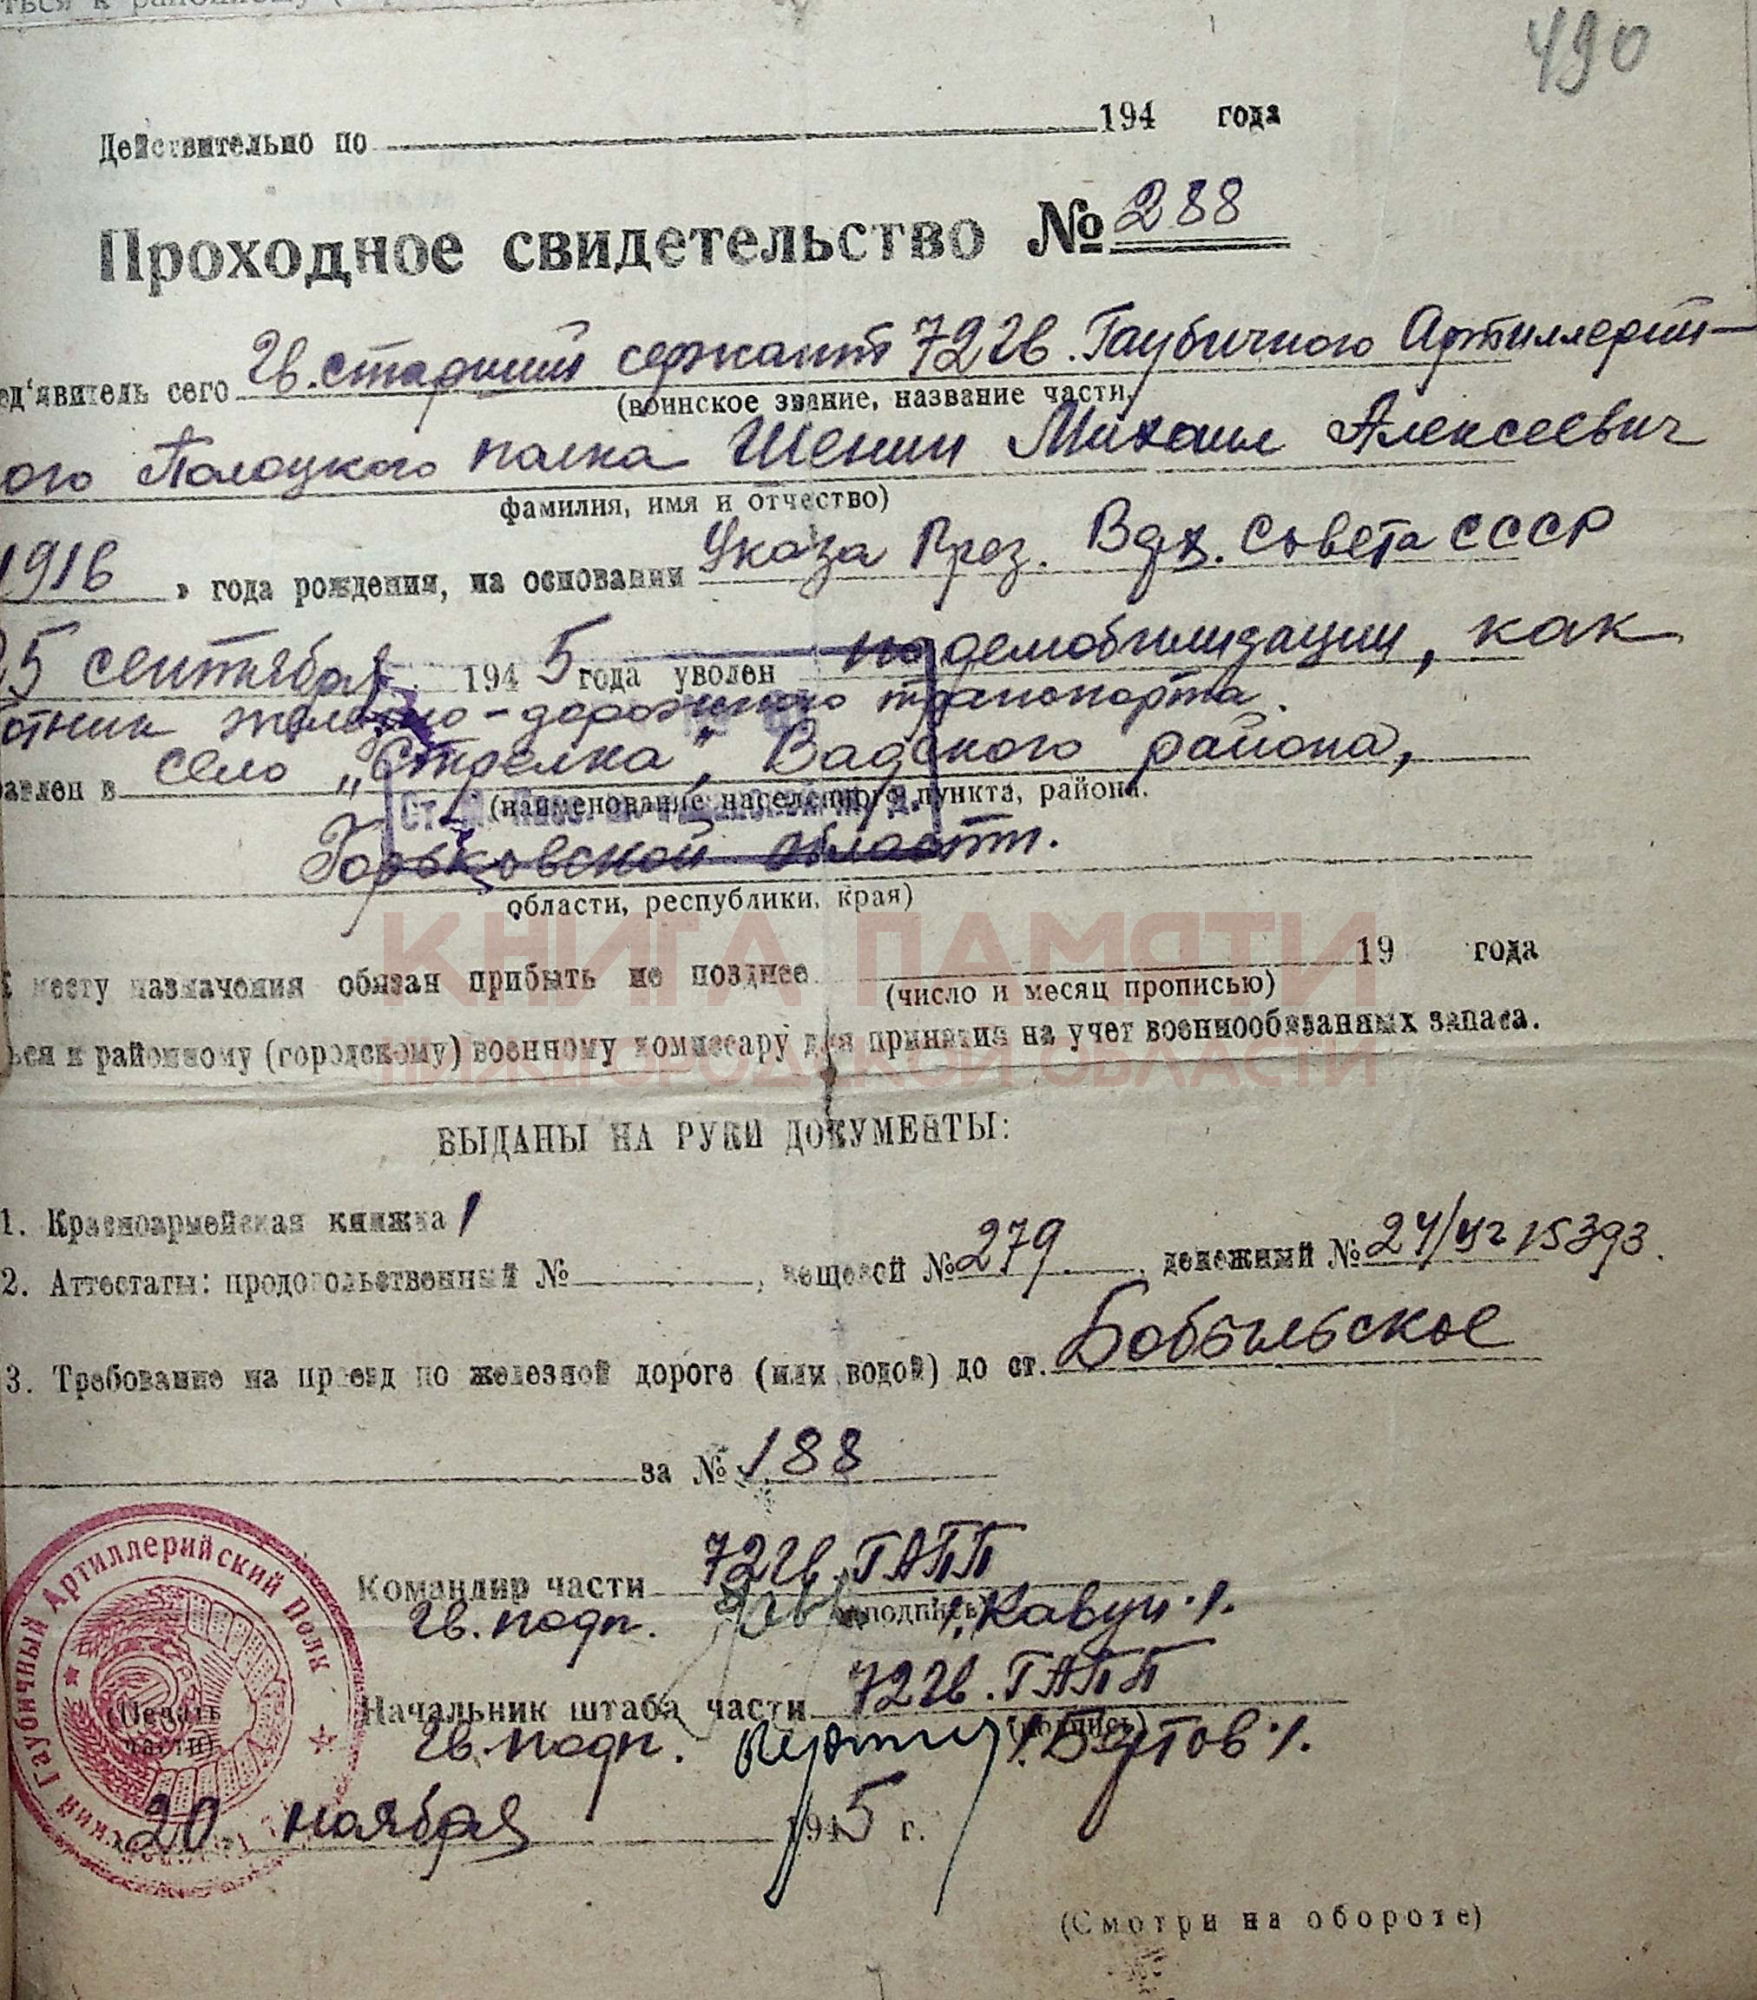 ться к районному (
490
Действительно по 194 года
Проходное свидетельство № 288
ед'явитель сего Гв. старший сержант 72 Гв. Гаубичного Артиллерий-
(воинское звание, название части,
ого Полоцкого полка Шенин Михаил Алексеевич
фамилия, имя и отчество)
1916 года рождения, на основании Указа През. Верх. Совета СССР
25 сентября 1945 года уволен по демобилизации, как
отник железно-дорожного транспорта.
авлен в село „Стрелка", Вадского района,
(наименование населенного пункта, района.
Горьковской области.
области, республики, края)
К месту назначения обязан прибыть не позднее 19 года
(число и месяц прописью)
ься к районному (городскому) военному комиссару для принятия на учет военнообязанных запаса.
КНИГА ПАМЯТИ
НИЖЕГОРОДСКОЙ ОБЛАСТИ
ВЫДАНЫ НА РУКИ ДОКУМЕНТЫ:
1. Красноармейская книжка 1
2. Аттестаты: продовольственный № , вещевой № 279 , денежный № 24/ 15393.
3. Требование на проезд по железной дороге (или водой) до ст. Бобыльское
за № 188
Командир части 72 Гв. ГАПП
Гв. подп. (подпись) /. Кавун ./.
Начальник штаба части 72 Гв. ГАПП
Гв. подп. (подпись) /. Бутов ./.
Гаубичный Артиллерийский Полк
(Печать
части)
20 ноября 1945 г.
(Смотри на обороте)